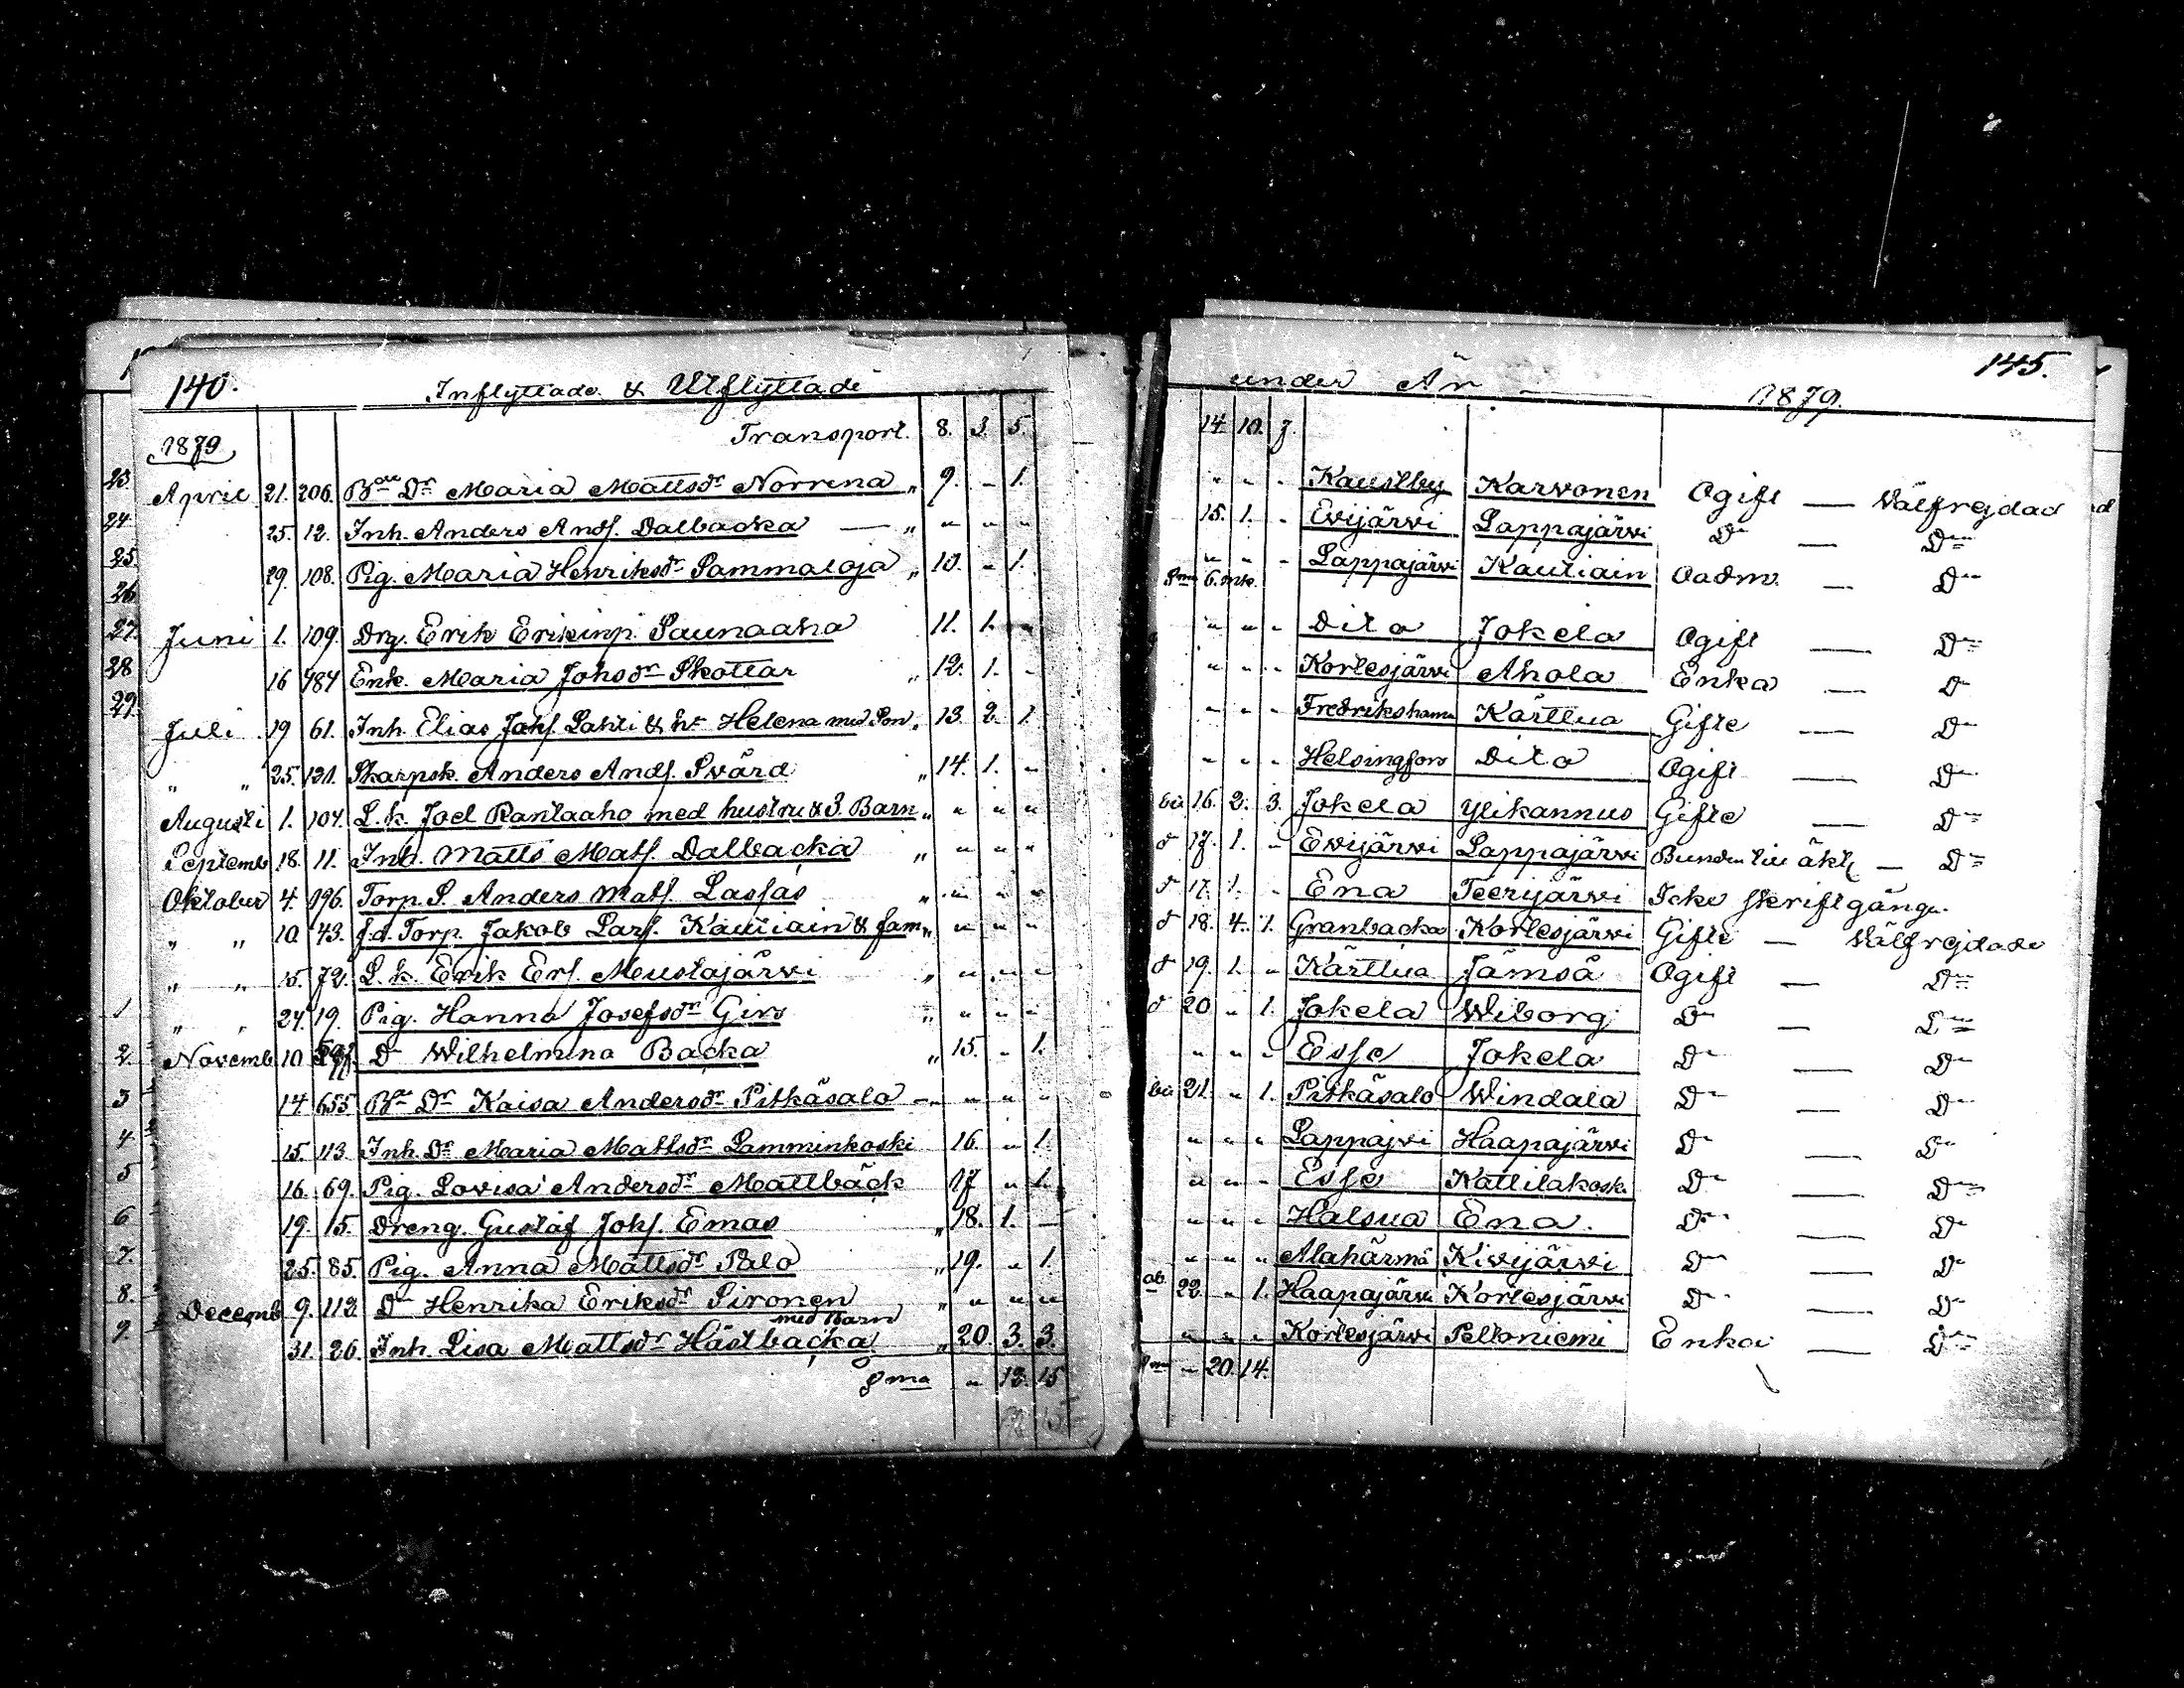 140. Inflyttade & Utflyttade
1879 Transport. 8. 3. 5.
April 21. 206. Bde Dr Maria Mattsdr Norrena " 9. " 1.
25. 12. Inh. Anders Ands. Dalbacka — " " " "
29. 108. Pig. Maria Henriksdr Sammaloja " 10. " 1.
Juni 1. 109. Drg. Erik Erikinp. Saunaaho 11. 1. "
16 484 Enk. Maria Johsdr Skottar " 12. 1. "
Juli 19 61. Inh. Elias Johs. Lahti & h. Helena med Son " 13. 2. 1.
" " 25. 121. Skarpsk. Anders Ands. Svärd " 14. 1. "
Augusti 1. 104. L.k. Joel Rantaaho med hustru & 3 Barn " " " "
Septemb 18. 11. Inh. Matts Mats. Dalbacka " " " "
Oktober 4. 196. Torp. S. Anders Mats. Lassas " " " "
" " 10 43. f.d. Torp. Jakob Lars. Kautiain & fam " " " "
" " 15. 72. L.k. Erik Ers. Mustajärvi " " " "
" " 24. 19. Pig. Hanna Josefsdr Girs " " " "
Novemb 10 D Wilhelmina Backa " 15. " 1.
14. 655 Bde Dr Kaisa Andersdr Pitkäsalo " " " "
15. 113. Inh. Dr Maria Mattsdr Lamminkoski 16. " 1.
16. 69. Pig. Lovisa Andersdr Mattbäck 17 " 1.
19. 15. Dreng. Gustaf Johs. Emas " 18. 1. —
25. 85. Pig. Anna Mattsdr Palo " 19. " 1.
Decemb 9. 112 D Henrika Eriksdr Sironen " " " "
med Barn
31. 26. Inh. Lisa Mattsdr Hästbacka " 20. 3. 3.
Sma " 12. 15
under År — 1879. 145.
14. 10. 7.
" " " Kaustby Karvonen Ogift — Välfrejdad
15. 1. " Evijärvi Lappajärvi Do — Do
" " " Lappajärvi Kautiain Oadm. — Do
Sma 6. mk.
" " " Dito Jokela Ogift — Do
" " " Kortesjärvi Ahola Enka — Do
" " " Fredrikshamn Kärttua Gifte — Do
" " " Helsingfors Dito Ogift — Do
bií 16. 2. 3. Jokela Ylikannus Gifte — Do
d 17. 1. " Evijärvi Lappajärvi Bunden till äkt. — Do
d 17. 1. " Ena Teerijärvi Icke skriftgång.
d 18. 4. 1. Granbacka Kortesjärvi Gifte — Välfrejdade
d 19. 1. " Kärttua Jämsä Ogift — Do
d 20 " 1. Jokela Wiborg Do — Do
" " " Esse Jokela Do — Do
bií 21. " 1. Pitkäsalo Windala Do — Do
" " " Lappajvi Haapajärvi Do — Do
" " " Esse Kattilakoski Do — Do
" " " Halsua Ena. Do — Do
" " " Alahärmä Kivijärvi Do — Do
ab 22. " 1. Haapajärvi Kortesjärvi Do — Do
" " " Kortesjärvi Peltoniemi Enka — Do
Sma " 20. 14.